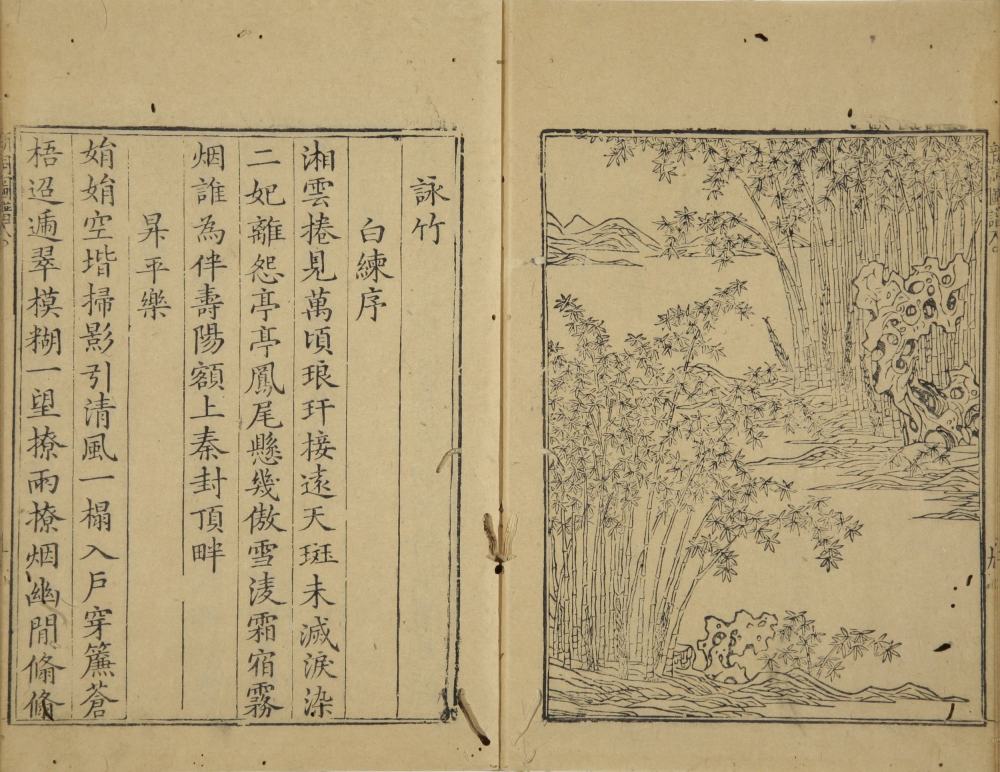 詠竹
白練序
湘雲捲見萬頃琅玕接遠天斑未滅淚染
二妃離怨亭亭鳳尾懸幾傲雪淩霜宿霧
烟誰為伴壽陽額上秦封頂畔
昇平樂
娟娟空堦掃影引清風一榻入戶穿簾蒼
梧迢遞翠模糊一望撩雨撩烟幽閒翛翛